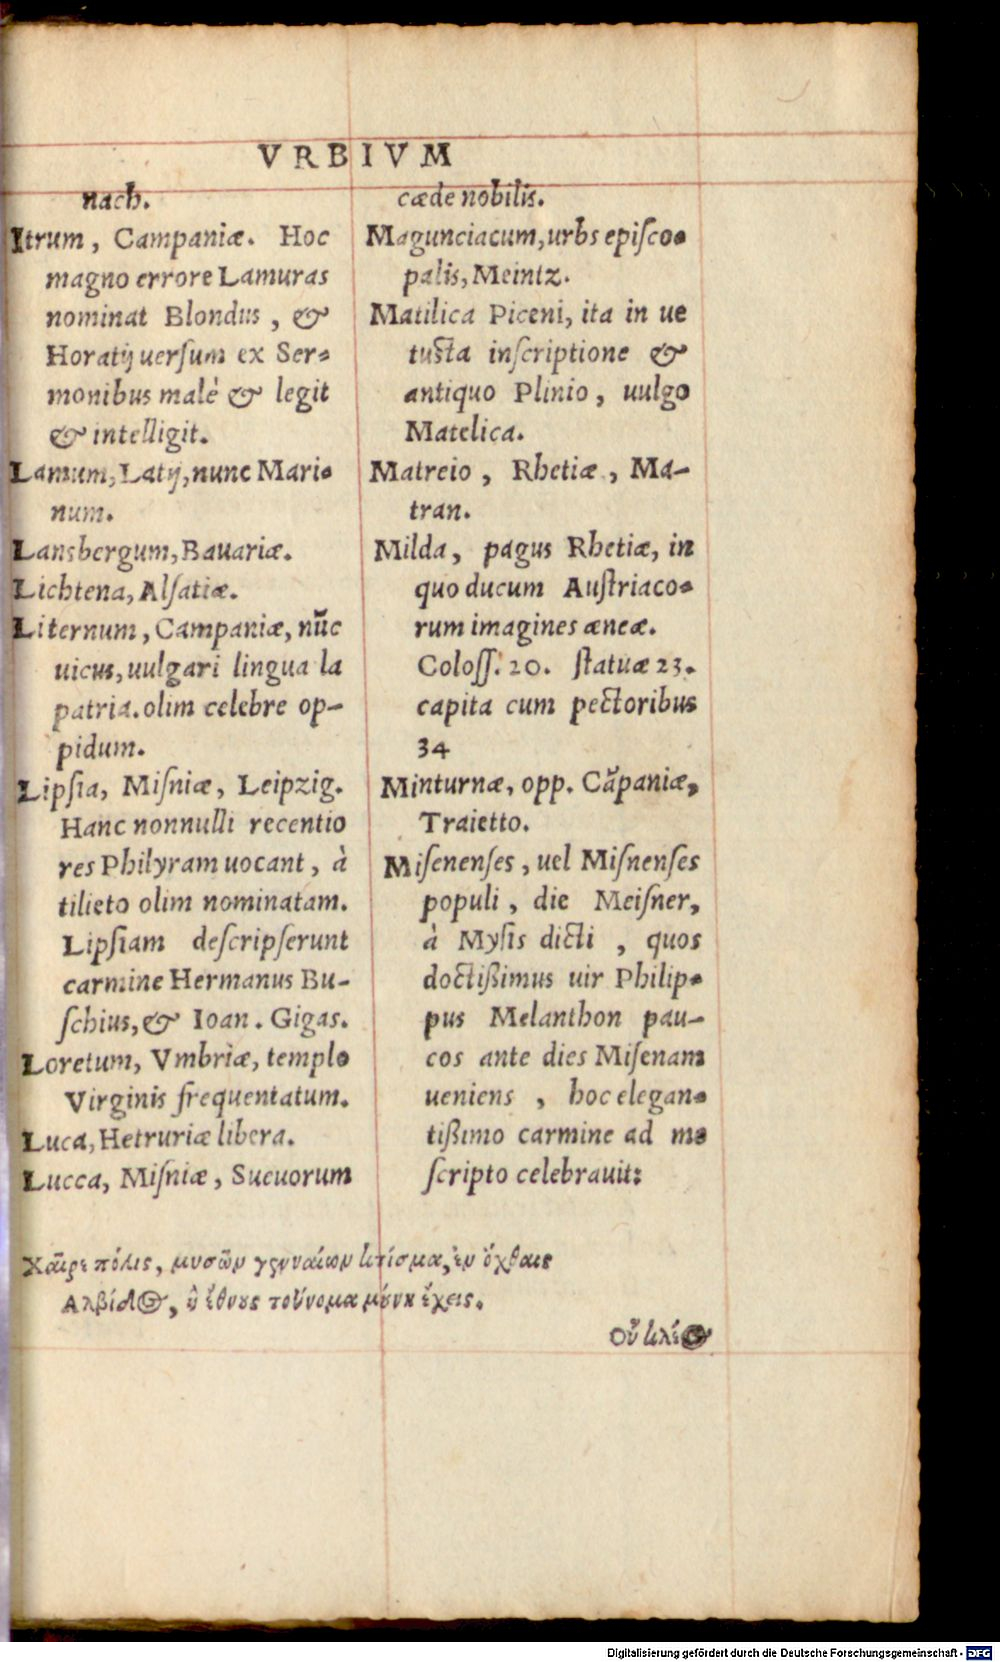 VRBIVM
nach.
Itrum, Campaniæ. Hoc
magno errore Lamuras
nominat Blondus, &
Horatij uersum ex Ser-
monibus malè & legit
& intelligit.
Lamum, Latij, nunc Mari-
num.
Lansbergum, Bauariæ.
Lichtena, Alsatiæ.
Liternum, Campaniæ, nūc
uicus, uulgari lingua la
patria. olim celebre op-
pidum.
Lipsia, Misniæ, Leipzig.
Hanc nonnulli recentio
res Philyram uocant, à
tilieto olim nominatam.
Lipsiam descripserunt
carmine Hermanus Bu-
schius, & Ioan. Gigas.
Loretum, Vmbriæ, templo
Virginis frequentatum.
Luca, Hetruriæ libera.
Lucca, Misniæ, Sueuorum
cæde nobilis.
Magunciacum, urbs episco-
palis, Meintz.
Matilica Piceni, ita in ue
tusta inscriptione &
antiquo Plinio, uulgo
Matelica.
Matreio, Rhetiæ, Ma-
tran.
Milda, pagus Rhetiæ, in
quo ducum Austriaco-
rum imagines æneæ.
Coloss. 20. statuæ 23.
capita cum pectoribus
34
Minturnæ, opp. Cāpaniæ,
Traietto.
Misenenses, uel Misnenses
populi, die Meisner,
à Mysis dicti, quos
doctißimus uir Philip-
pus Melanthon pau-
cos ante dies Misenam
ueniens, hoc elegan-
tißimo carmine ad me
scripto celebrauit:
Χαῖρε πόλις, μυσῶν γενναίων κτίσμα, ἐν ὄχθαις
Αλβίδος, ἣ ἔθνους τοὔνομα μόυνη ἔχεις.
Οὗ κλέος
Digitalisierung gefördert durch die Deutsche Forschungsgemeinschaft - DFG